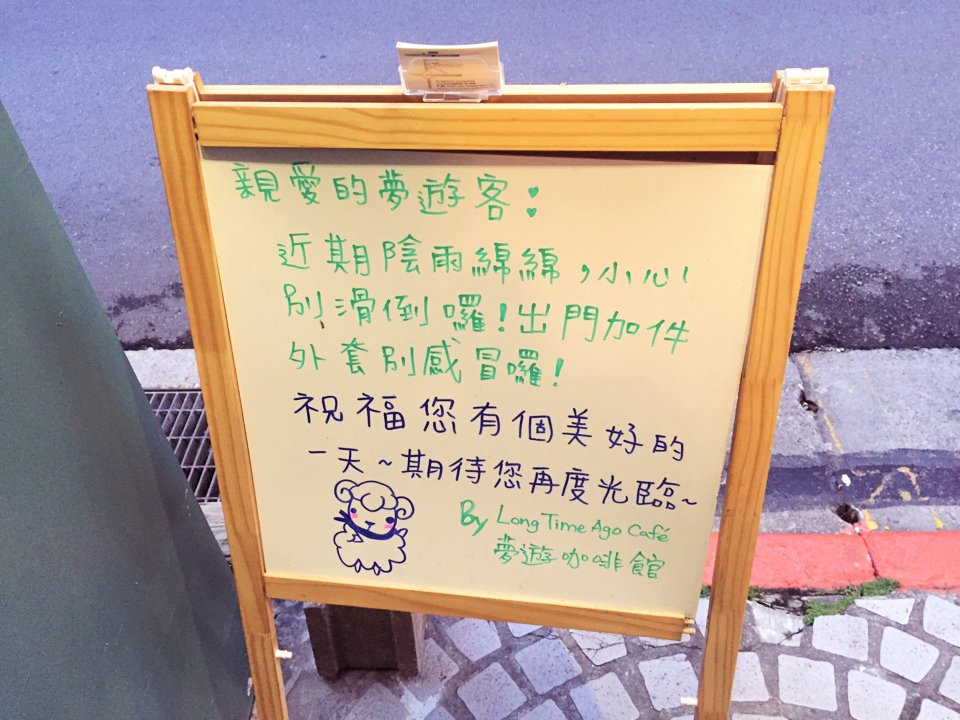 親愛的夢遊客:
近期陰雨綿綿,小心
別滑倒囉!出門加件
外套別感冒囉!
祝福您有個美好的
一天~期待您再度光臨~
By Long Time Ago Café
夢遊咖啡館